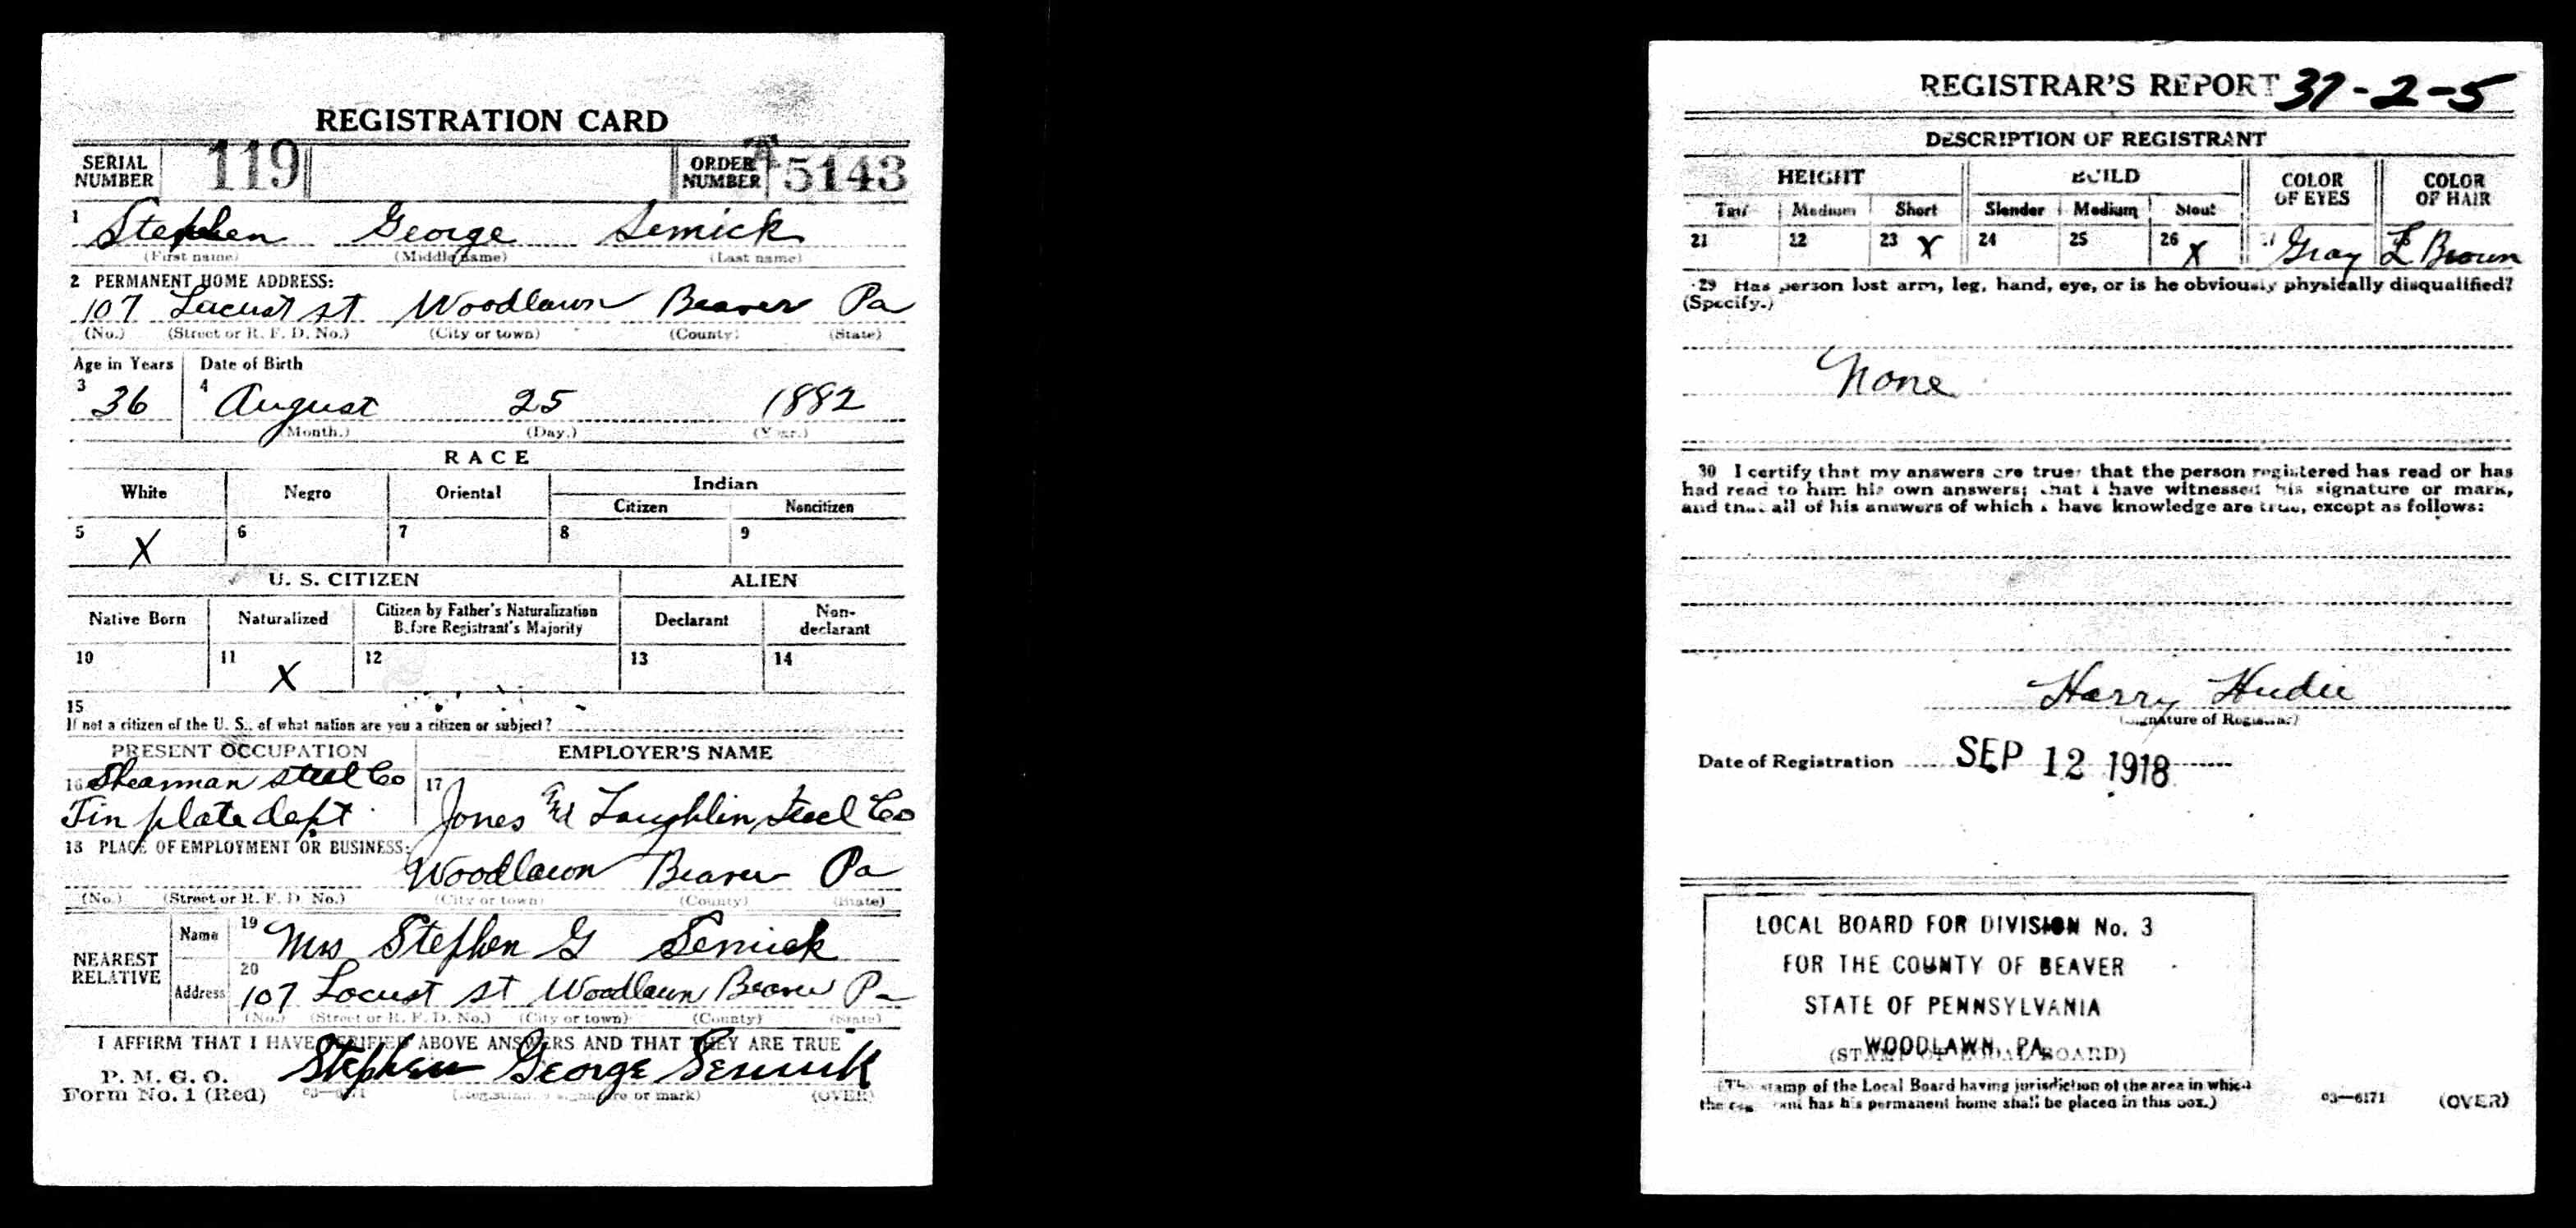 REGISTRATION CARD
SERIAL NUMBER 119 ORDER NUMBER A 5143
1 Stephen George Semick
(First name) (Middle name) (Last name)
2 PERMANENT HOME ADDRESS:
107 Locust st Woodlawn Beaver Pa
(No.) (Street or R. F. D. No.) (City or town) (County) (State)
Age in Years Date of Birth
3 36 4 August 25 1882
(Month.) (Day.) (Year.)
RACE
White Negro Oriental Indian
Citizen Noncitizen
5 X 6 7 8 9
U. S. CITIZEN ALIEN
Native Born Naturalized Citizen by Father's Naturalization Before Registrant's Majority Declarant Non-declarant
10 11 X 12 13 14
15
If not a citizen of the U. S., of what nation are you a citizen or subject?
PRESENT OCCUPATION EMPLOYER'S NAME
16 Shearman steel Co 17
Tin plate dept Jones and Laughlin Steel Co
18 PLACE OF EMPLOYMENT OR BUSINESS:
Woodlawn Beaver Pa
(No.) (Street or R. F. D. No.) (City or town) (County) (State)
NEAREST RELATIVE
Name 19 Mrs Stephen G Semick
Address 20 107 Locust st Woodlawn Beaver Pa
(No.) (Street or R. F. D. No.) (City or town) (County) (State)
I AFFIRM THAT I HAVE VERIFIED ABOVE ANSWERS AND THAT THEY ARE TRUE
P. M. G. O. Stephen George Semick
Form No. 1 (Red) 03—6171 (Registrant's signature or mark) (OVER)
REGISTRAR'S REPORT 37-2-5
DESCRIPTION OF REGISTRANT
HEIGHT BUILD COLOR OF EYES COLOR OF HAIR
Tall Medium Short Slender Medium Stout
21 22 23 X 24 25 26 X Gray L Brown
29 Has person lost arm, leg, hand, eye, or is he obviously physically disqualified?
(Specify.)
None
30 I certify that my answers are true; that the person registered has read or has
had read to him his own answers; that I have witnessed his signature or mark,
and that all of his answers of which I have knowledge are true, except as follows:
Harry Hudie
(Signature of Registrar)
Date of Registration SEP 12 1918
LOCAL BOARD FOR DIVISION No. 3
FOR THE COUNTY OF BEAVER
STATE OF PENNSYLVANIA
WOODLAWN, PA.
(STAMP OF LOCAL BOARD)
(The stamp of the Local Board having jurisdiction of the area in which
the registrant has his permanent home shall be placed in this box.)
03—6171 (OVER)